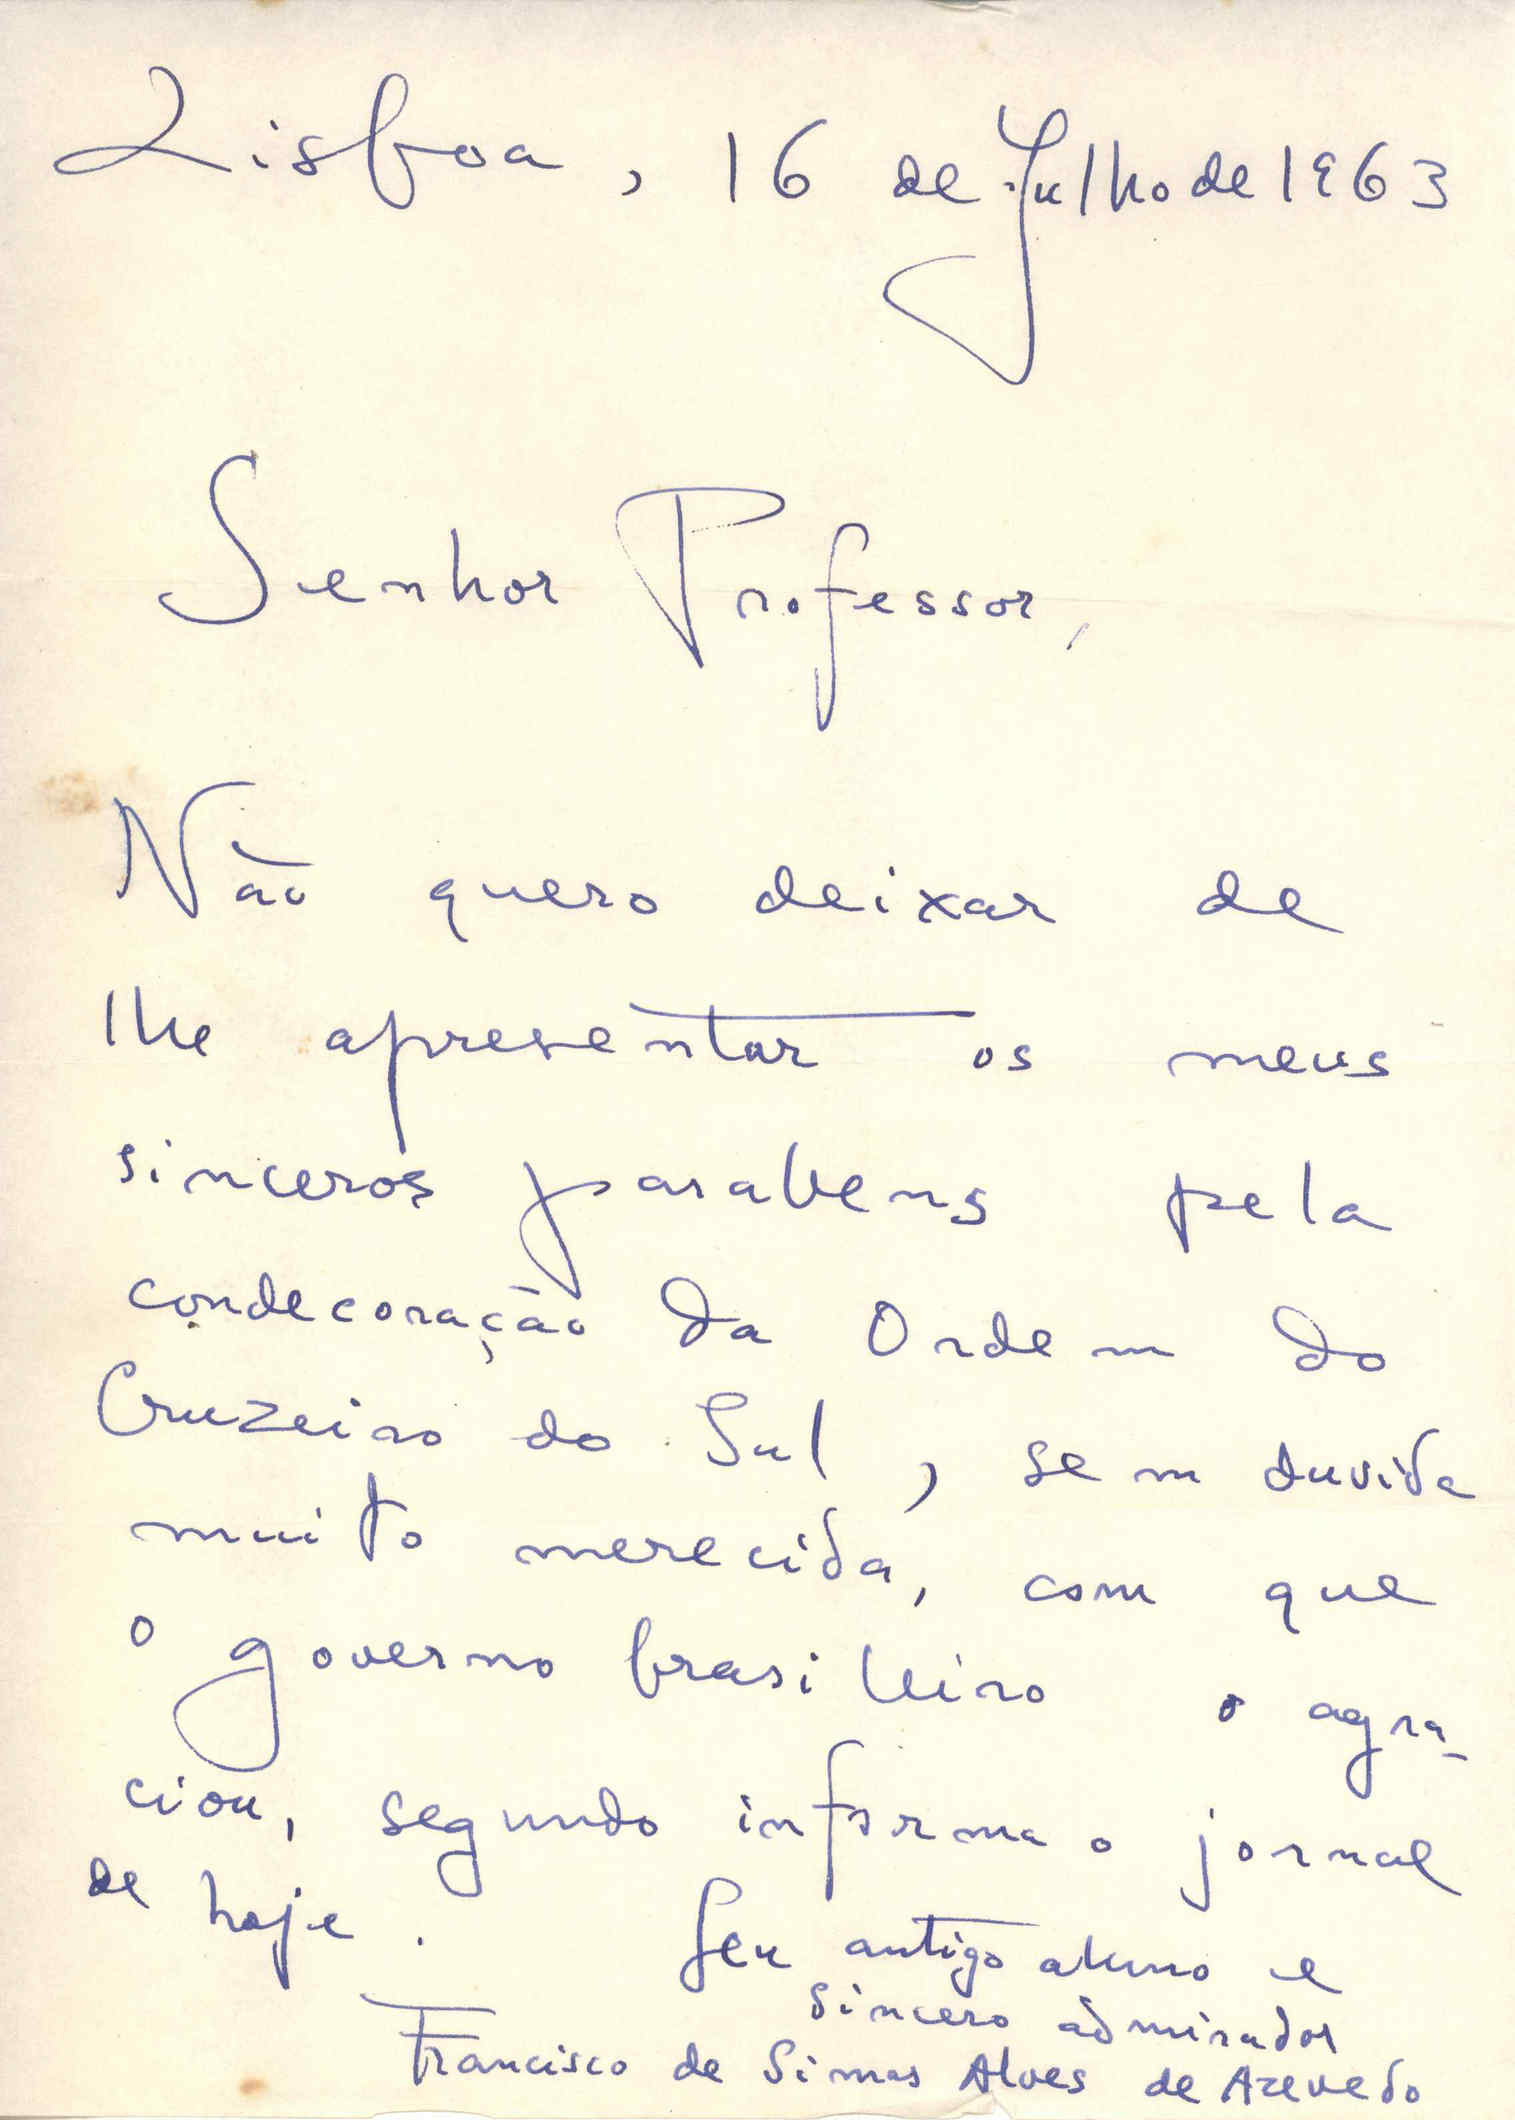 Lisboa, 16 de Julho de 1963
Senhor Professor,
Não quero deixar de
lhe apresentar os meus
sinceros parabens pela
condecoração da Ordem do
Cruzeiro do Sul, sem duvida
muito merecida, com que
o governo brasileiro o agra-
ciou, segundo informa o jornal
de hoje. Seu antigo aluno e
sincero admirador
Francisco de Simas Alves de Azevedo